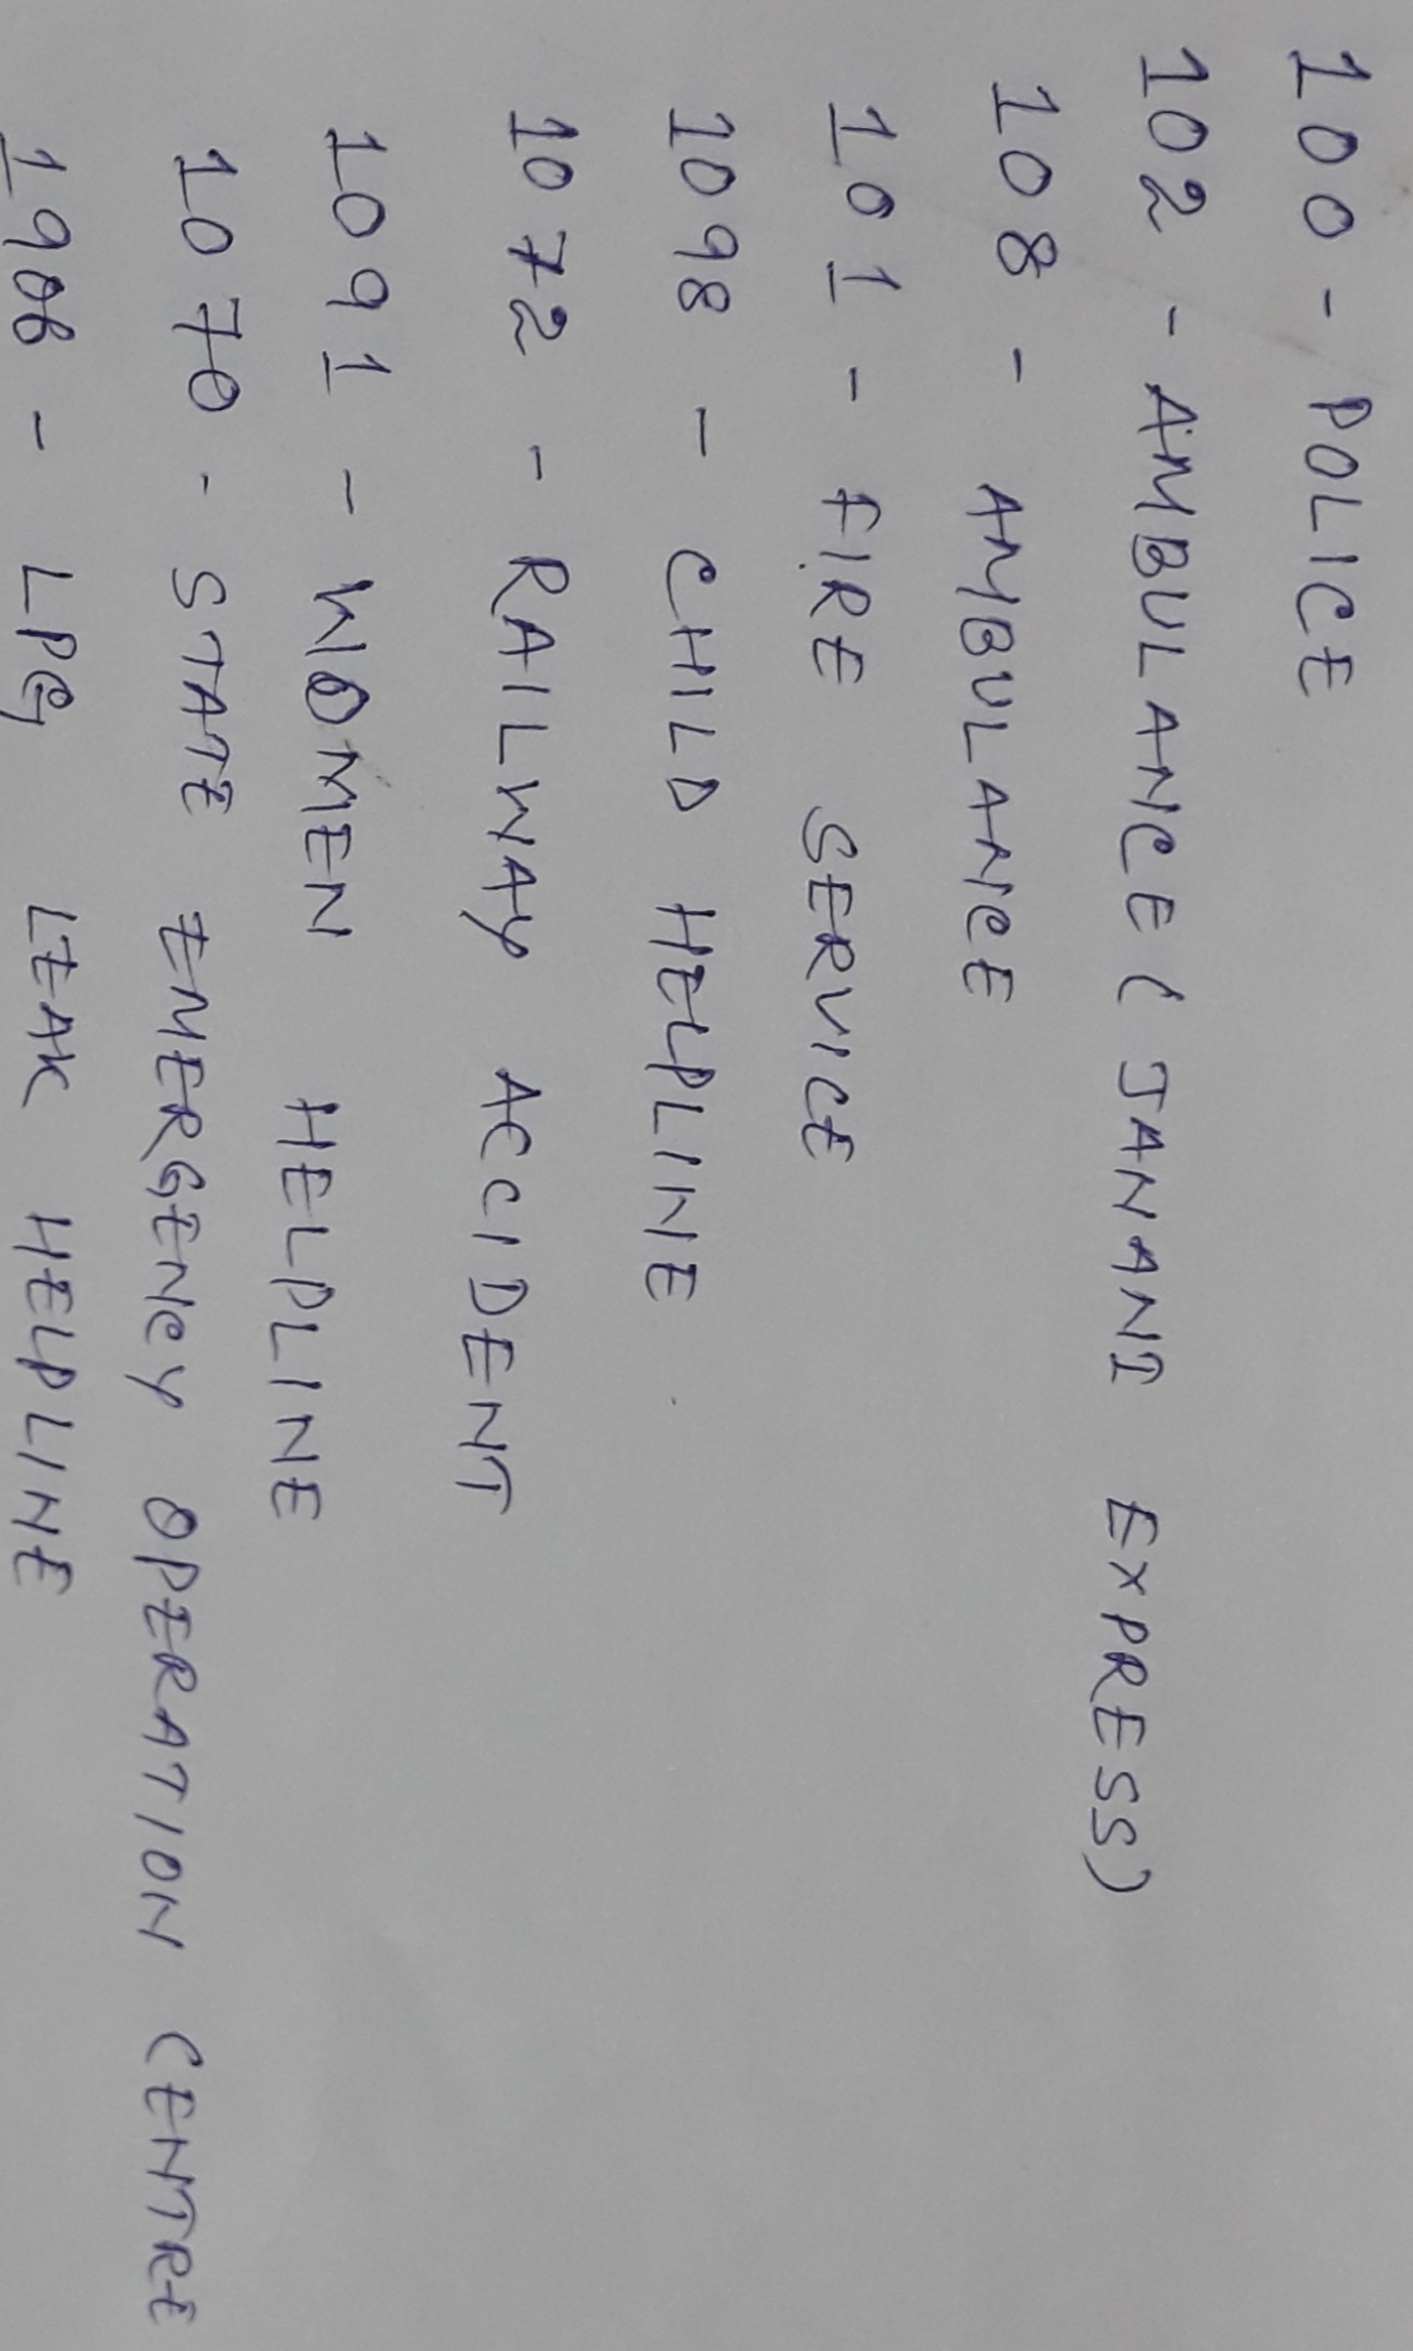 100 - POLICE
102 - AMBULANCE ( JANANI EXPRESS)
108 - AMBULANCE
101 - FIRE SERVICE
1098 - CHILD HELPLINE
1072 - RAILWAY ACCIDENT
1091 - WOMEN HELPLINE
1070 - STATE EMERGENCY OPERATION CENTRE
1906 - LPG LEAK HELPLINE